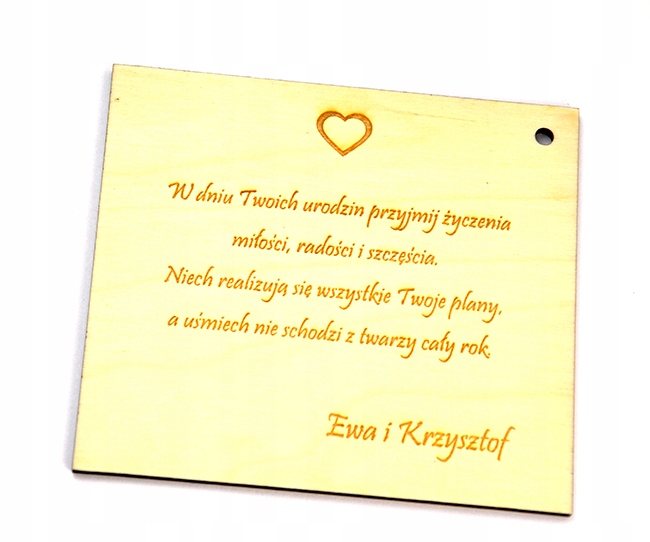 W dniu Twoich urodzin przyjmij życzenia
miłości, radości i szczęścia.
Niech realizują się wszystkie Twoje plany,
a uśmiech nie schodzi z twarzy cały rok.
Ewa i Krzysztof